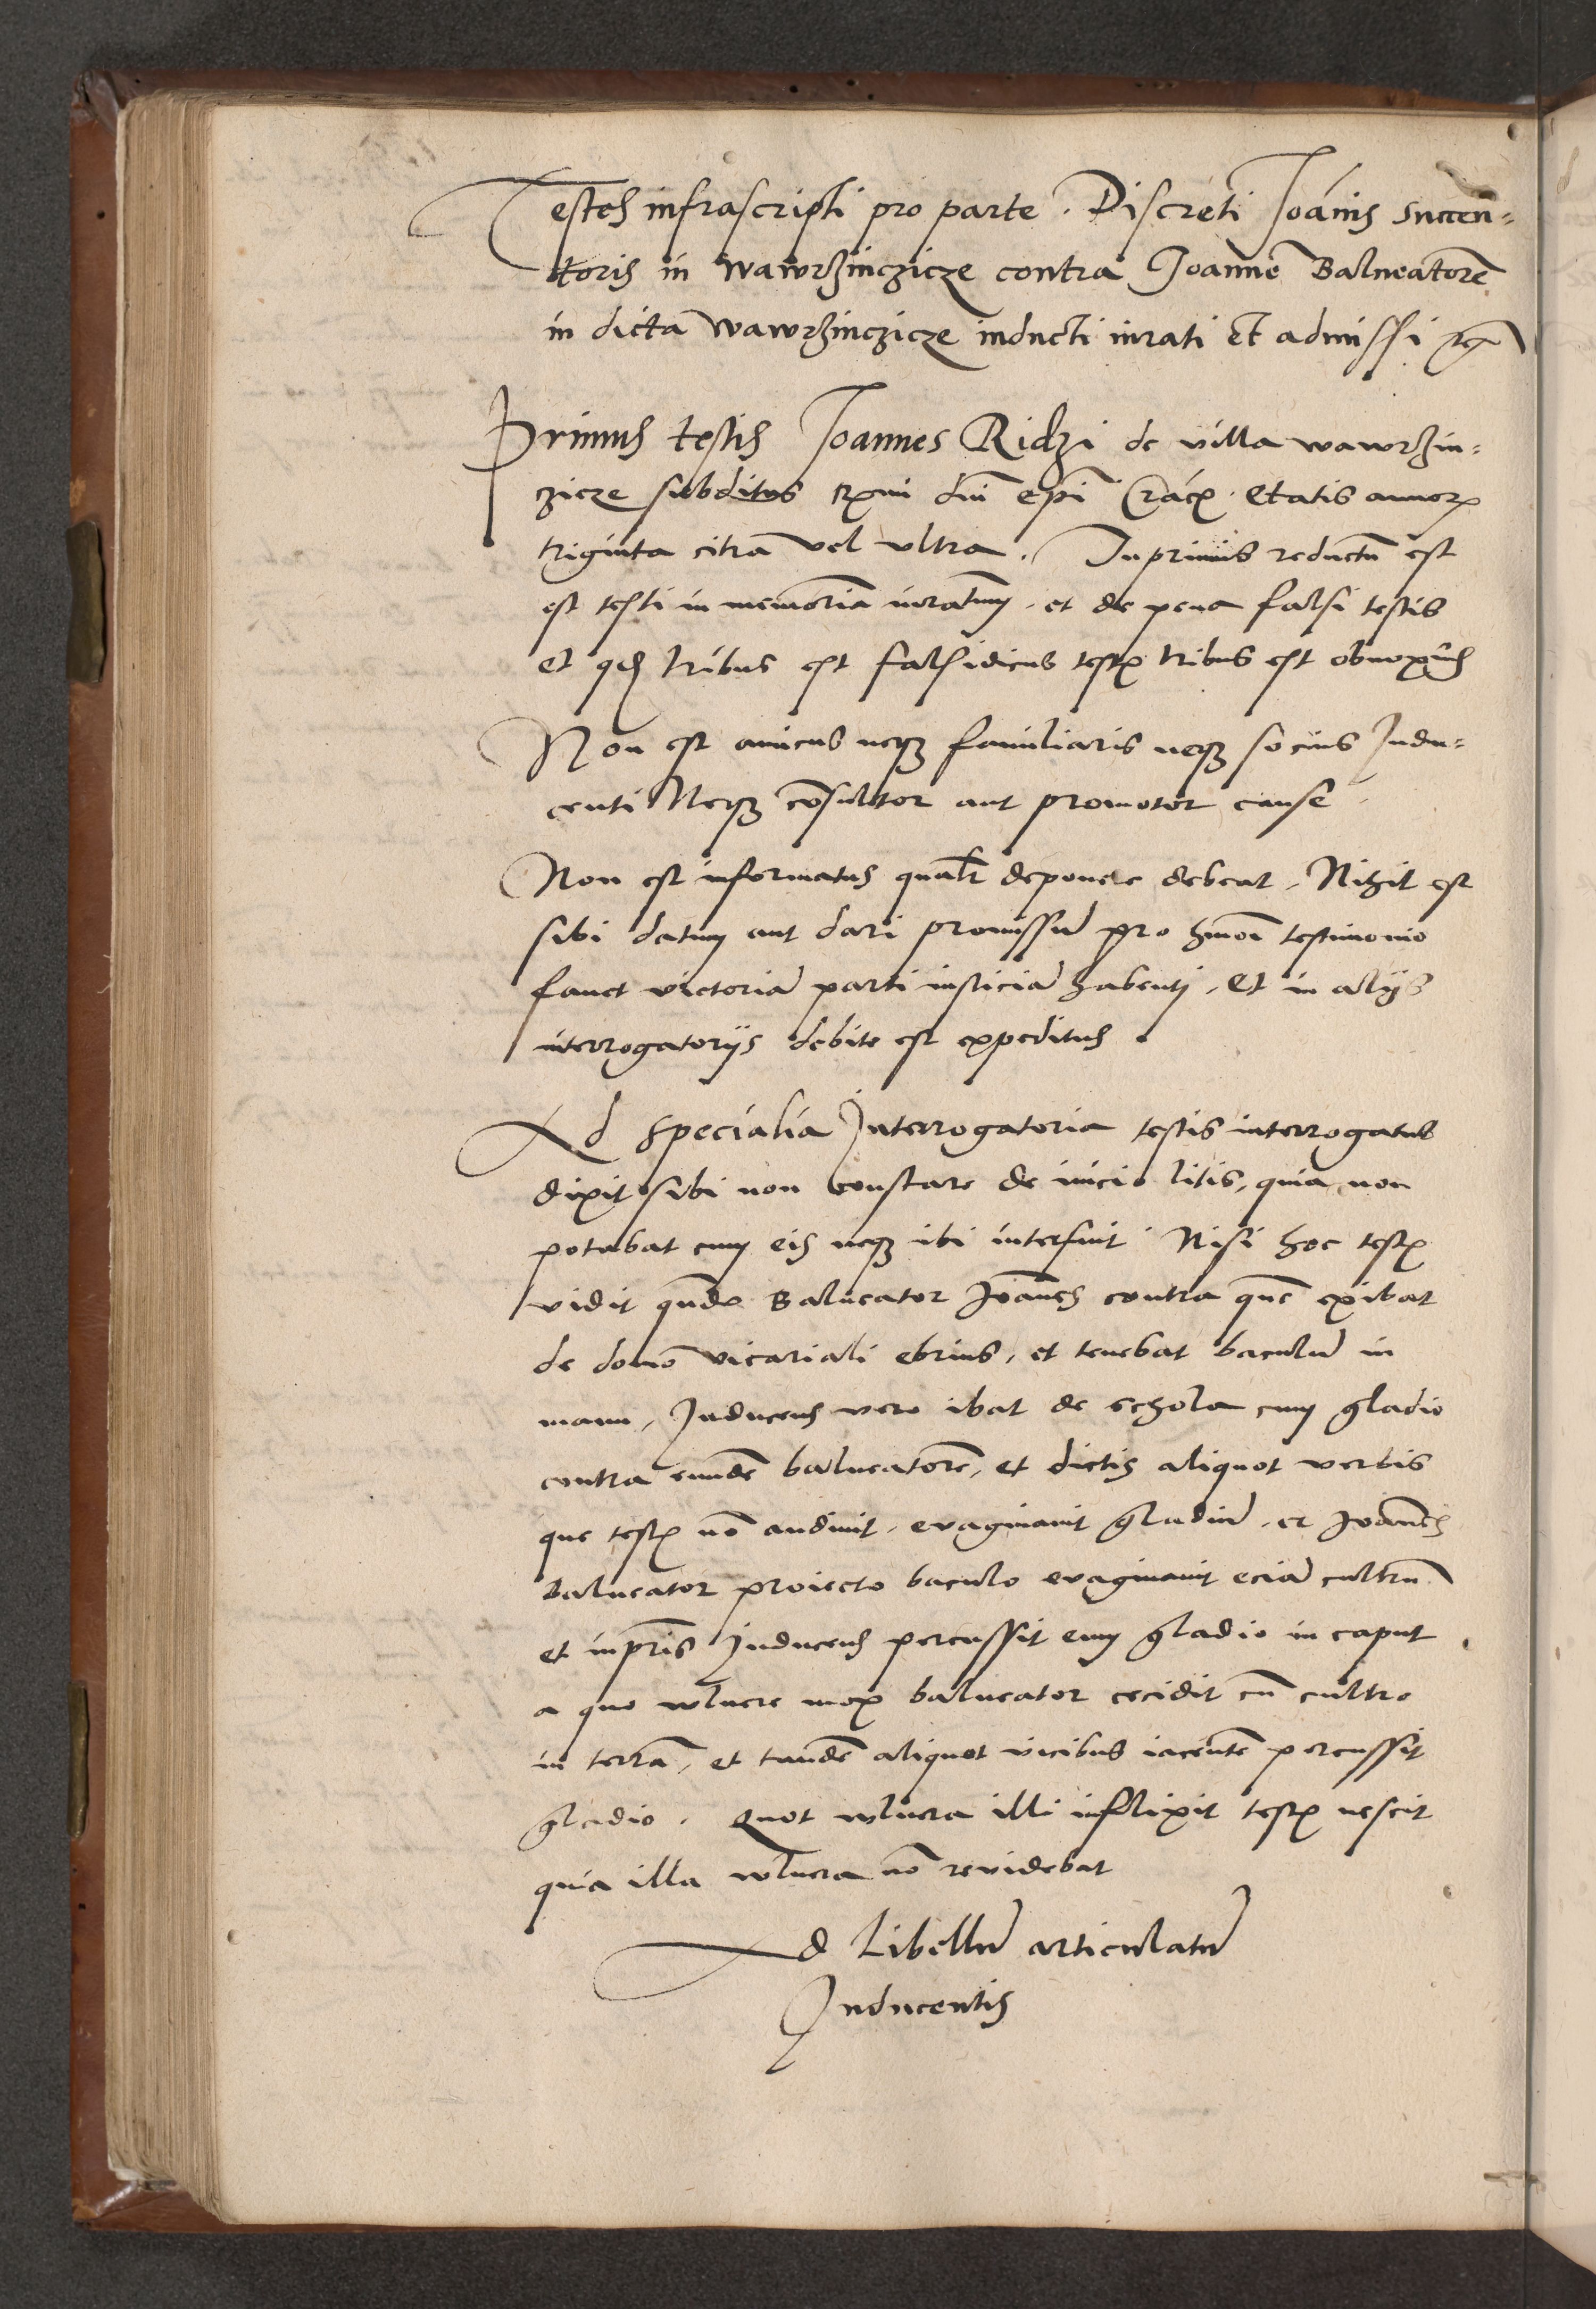 Testes infrascripti pro parte. Discreti Joānis succen=
toris in Wawrzinczicze contra Joannē Balneatorē
in dicta Wawrzinczicze inducti iurati Et admissi rc̄
Primus testis Joannes Ridzi de villa wawrzin=
zicze subditus Rx̄mi dnī epī Cracō. Etatis annorꝝ
triginta citra vel ultra. Inprimis reductū est
est testi in memoriā iuratum. et de pena falsi testis
et qd̄ tribus est falsidicus testꝭ tribus est obnoxius
Non est amicus neqꝫ familiaris neqꝫ socius Indu=
centi Neqꝫ cōsultor aut promotor cause.
Non est informatus qualr̄ deponere debeat, Nihil est
sibi datum aut dari promissū pro hmōi testimonio
fauet victoriā parti iusticiā habenti, Et in alijs
interrogatorijs debite est expeditus.
Ad specialia Interrogatoria testis interrogatus
dixit sibi non constare de inicio litis, quia non
potabat cum eis neqꝫ ibi interfuit Nisi hoc testꝭ
vidit quādo Balneator Joānes contra quē exibat
de domo vicariali ebrius, et tenebat baculū in
manu, Inducens vero ibat de schola cum gladio
contra eundē balneatorē, et dictis aliquot verbis
que testꝭ nō audiuit, evaginauit gladiū, et Joannes
balneator proiecto baculo evaginauit eciā cultrū
et inprīs Inducens percussit eum gladio in caput
a quo wlnere mox balneator cecidit cū cultro
in terrā, et tandē aliquot vicibus iacentē percussit
gladio. Quot wlnera illi inflixit testꝭ nescit
quia illa wlnera nō revidebat
Ad Libellū articulatū
Inducentis